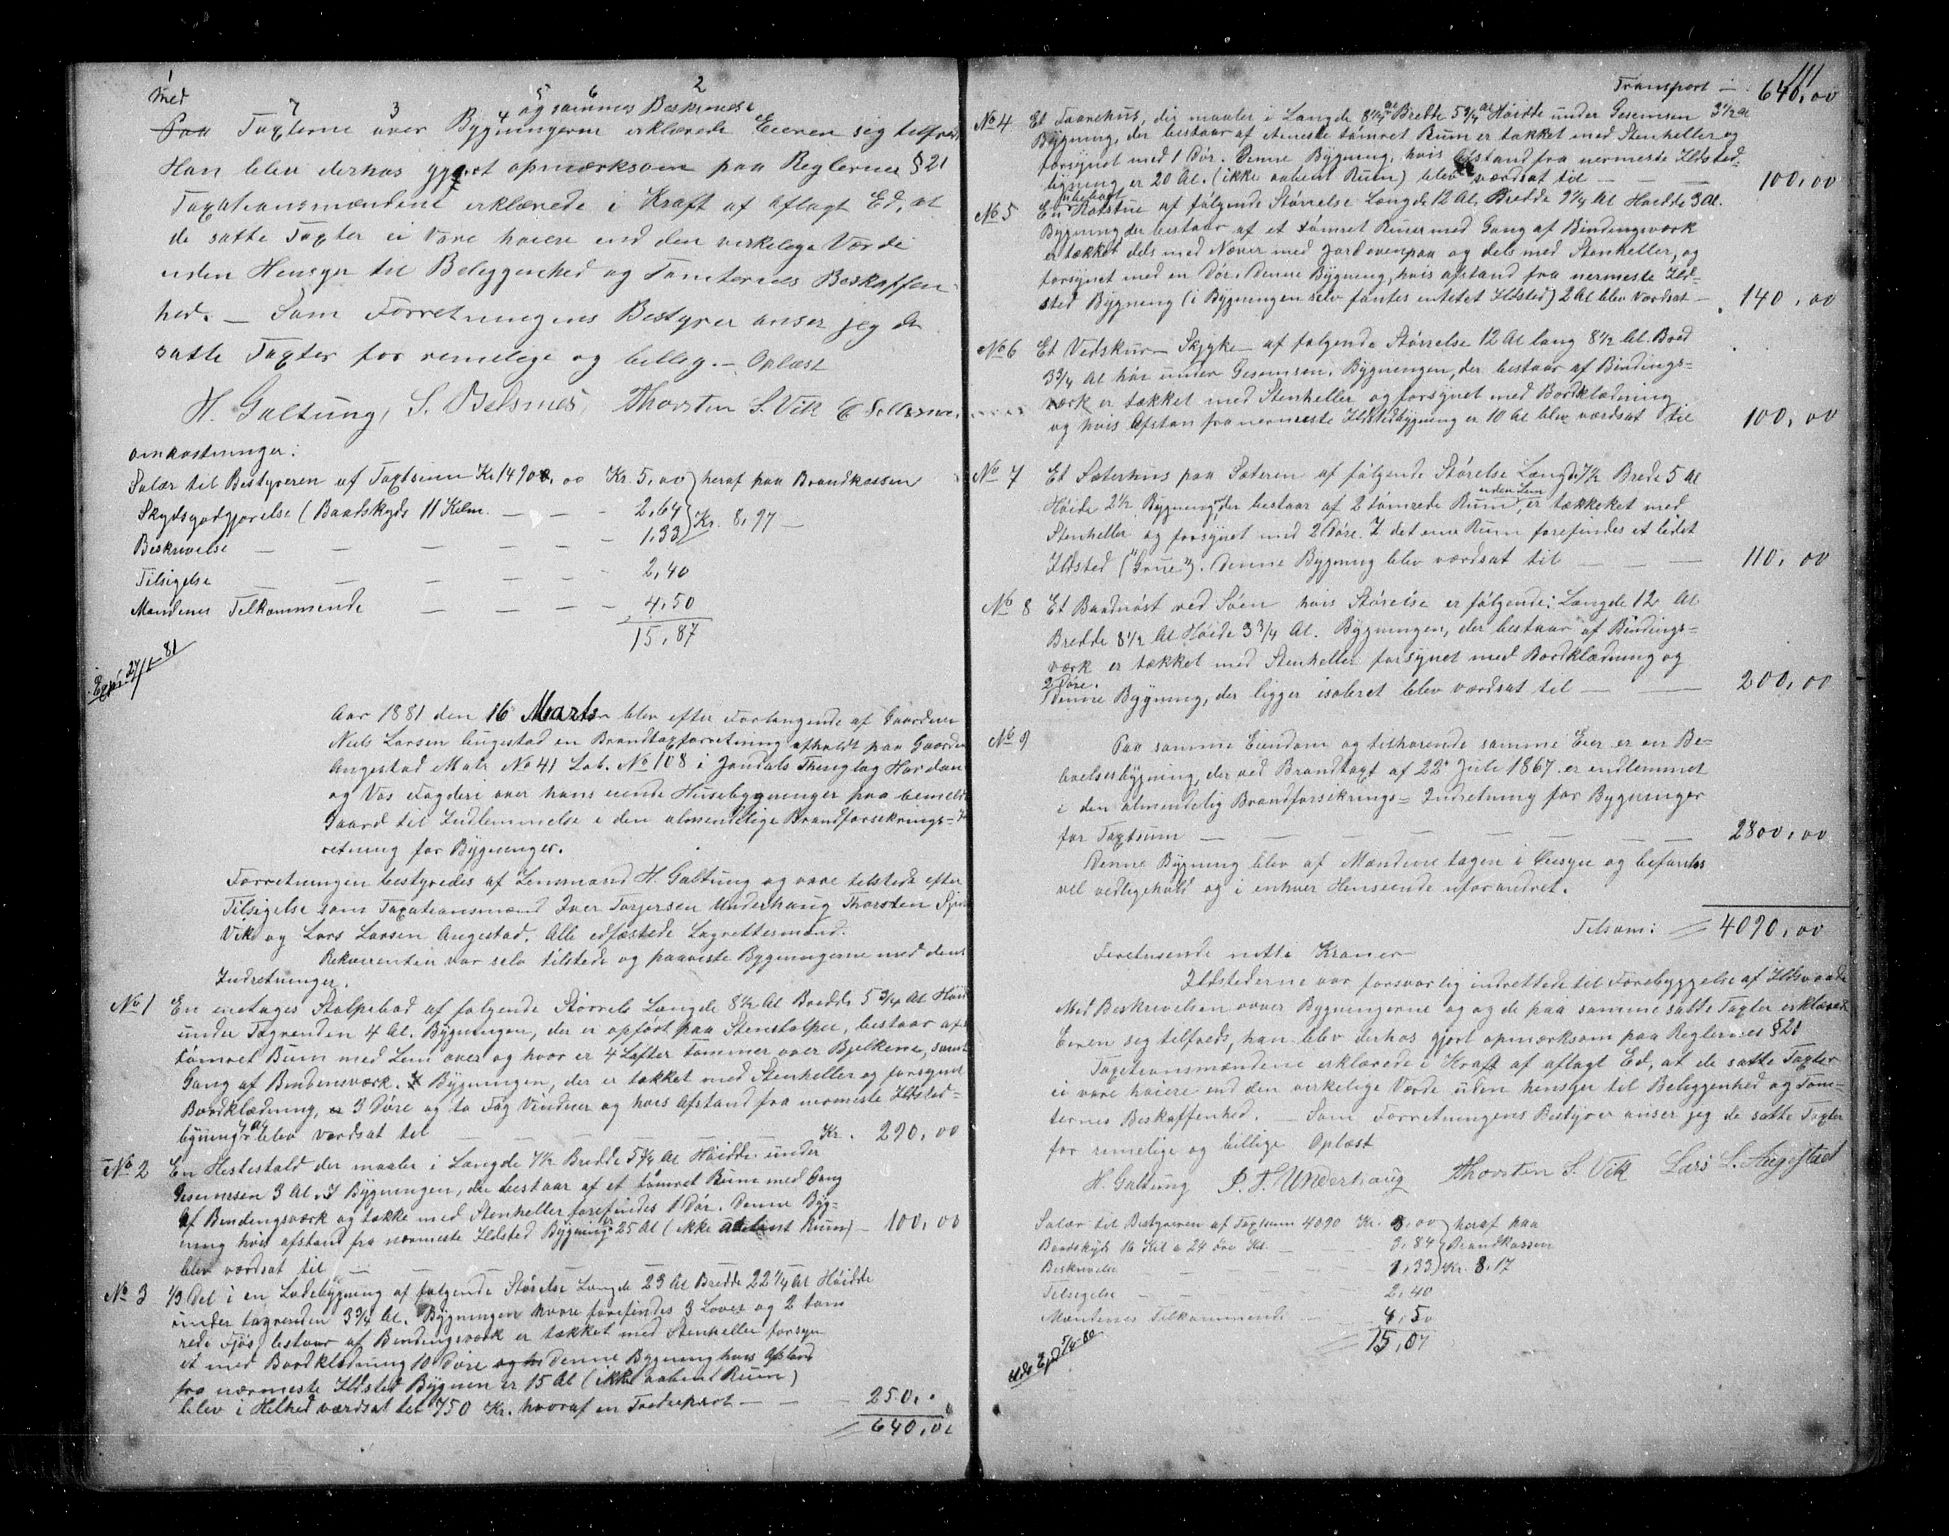 med
Paa Taxterne over Bygningerne og sammes Beskrivelse erklærede Eieren sig tilfreds,
Han blev derhos gjort opmærksom paa Reglernes § 21
Taxationsmændene erklærede i Kraft af aflagt Ed, at
de satte Taxter ei vare høiere end den virkelige Værdi
uden Hensyn til Beliggenhed og Tomternes Beskaffen-
hed. — Som Forretningens Bestyrer anser jeg de
satte Taxter for rimelige og billig. — Oplæst
H. Galtung, S. Belsnes, Thorsten S. Vik
Omkostninger:
Salær til Bestyreren af Taxtsum Kr. 1490,00 Kr. 5,00 heraf paa Brandkassen
Skydsgodtgjørelse (Baadskyds 11 Kilm. — — 2,64 Kr. 8,97 —
Beskrivelse — — — — — 1,33
Tilsigelse — — — — 2,40
Mændenes Tilkommende — — — — 4,50
15,87
Exp. 27/4 - 81
Aar 1881 den 16 Marts blev efter Forlangende af Gaardeier
Niels Larsen Augestad en Brandtaxforretning afholdt paa Gaarden
Augestad Matr. No 41 Løb. No 108 i Jondals Thinglag Hardan
og Vos Fogderi over hans eiende Husebygninger paa bemeldte
Gaard til Indlemmelse i den almindelige Brandforsikrings-
retning for Bygninger.
Forretningen bestyredes af Lensmand H. Galtung og vare tilstede efter
Tilsigelse som Taxationsmænd Iver Torgersen Underhaug Thorsten
Vik og Lars Larsen Augestad. Alle edfæstede Lagrettesmænd.
Rekvirenten var selv tilstede og paaviste Bygningerne med deres
Indretninger.
No 1 En enetages Stolpebod af følgende Størrelse Længde 8½ Al Bredde 5¾ Al Høide
under Tagrenden 4 Al. Bygningen, der er opført paa Stenstolper, bestaar af et
tømret Rum med Lem over og hvor er 4 Lafter Tømmer over Bjelkerne, samt
Gang af Bindensværk. Bygningen, der er tækket med Stenheller og forsynet
Bordklædning, 3 Døre og to Fag Vinduer og hvis Afstand fra nermeste Ildsted-
bygning blev værdsat til — — — Kr. 290,00
No 2 En Hestestald der maaler i Længde 7½ Bredde 5¾ Al Høidde under
Gesemsen 3 Al. I Bygningen, der bestaar af et tømret Rum med Gang
af Bendingsværk og tække med Stenheller forefindes 1 Dør. Denne Byg-
ning hvis afstand fra nærmeste Ildsted Bygning er 25 Al (ikke aabent Rum) — 100,00
blev værdsat til — — — —
No 3 1/3 Del i en Ladebygning af følgende Størelse Længde 23 Al Bredde 22¼ Al Høidde
under tagrenden 3¾ Al. Bygningen hvore forefindes 3 Lover og 2 tøm
rede Fjøs bestaar af Bendingsværk er tækket med Stenheller forsyn
et med Bordklædning 10 Døre og denne Bygning hvis Afstand
fra nærmeste Ildsted Bygnen er 15 Al (ikke aabent Rum)
blev i Helhed værdsat til 750 Kr. hvoraf en Trediepart — — 250,
640,00
111
Transport — 640,00
No 4 Et Taarehus, dig maaler i Længde 8¼ al Bredde 5¾ al Høidde under Gesemsen 3½ al
Bygning, der bestaar af eneste tømret Rum er tækket med Stenheller og
forsynet med 1 Dør. Denne Bygning, hvis Afstand fra nermeste Ildsted-
bygning er 20 Al. (ikke aabent Rum) blev værdsat til — — — 100,00
No 5 En ubeboet Røkstue af følgende Størrelse Længde 12 Al. Bredde 9¼ Al Høidde 3 Al.
Bygning der bestaar af et tømret Rum med Gang af Bindingsværk
er tækket dels med Næver med Jord ovenpaa og dels med Stenheller, og
forsynet med en Dør. Denne Bygning, hvis afstand fra nermeste Ild-
sted Bygning (i Bygningen selv fantes intetet Ildsted) 2 Al blev værdsat — 140,00
No 6 Et Vedskur — Skjyke — af følgende Størrelse 12 Al lang 8½ Al. Bred
3¾ Al høi under Gesemsen. Bygningen, der bestaar af Bindings-
værk er tækket med Stenheller og forsynet med Bordklædning
og hvis Afstan fra nermeste Ildstedbygning er 10 Al blev værdsat til 100,00
No 7 Et Sæterhus paa Sæteren af følgende Størelse Længde 7½ Brede 5 Al
Høide 2½ Bygningen, der bestaar af 2 tømrede Rum uden Lem, er tækket med
Stenheller og forsynet med 2 Døre. I det ene Rum forefindes et lidet
Ildsted ("Grue"). Denne Bygning blev værdsat til — — — 110,00
No 8 Et Baadnøst ved Søen hvis Størelse er følgende: Længde 12 Al
Bredde 8½ Al Høide 3¾ Al. Bygningen, der bestaar af Bindings-
værk er tækket med Stenheller forsynet med Bordklædning og
2 Døre.
Denne Bygning, der ligger isoleret blev værdsat til — — 200,00
No 9 Paa samme Eiendom og tilhørende samme Eier er en Be-
boelsesbygning, der ved Brandtaxt af 22de Juli 1867 er indlemmet
i den almendelig Brandforsikrings-Indretning for Bygninger
for Taxtsum — — — — — 2800,00
Denne Bygning blev af Mændene tagen i Øiesyn og befantes
vel vedligehold og i enhver Henseende uforandret.
Tilsam: 4090,00
Firetusende nitti Kroner —
Ildstederne var forsvarlig indrettede til Forebyggelse af Ildsvaade
Med Beskrivelsen over Bygningerne og de paa samme satte Taxter erklærede
Eieren sig tilfreds, han blev derhos gjort opmærksom paa Reglernes § 21
Taxationsmændene erklærede i Kraft af aflagt Ed, at de satte Taxter
ei vare høiere end den virkelige Værde uden hensyn til Beliggenhed og Tom-
ternes Beskaffenhed. — Som Forretningens Bestyrer anser jeg de satte Taxter
for rimelige og billige Oplæst
H. Galtung Thorsten S. Vik Lars L. Augestad
Salær til Bestyreren af Taxtsum 4090 Kr. 3,00 heraf paa
Baadskyds 16 Kil a 24 øre Kil. — — 3,84 Brandkassen
Beskrivelse — — — 1,33 Kr 8,17
Tilsigelse — — — 2,40
Mændenes Tilkommende — — 4,50
15,07